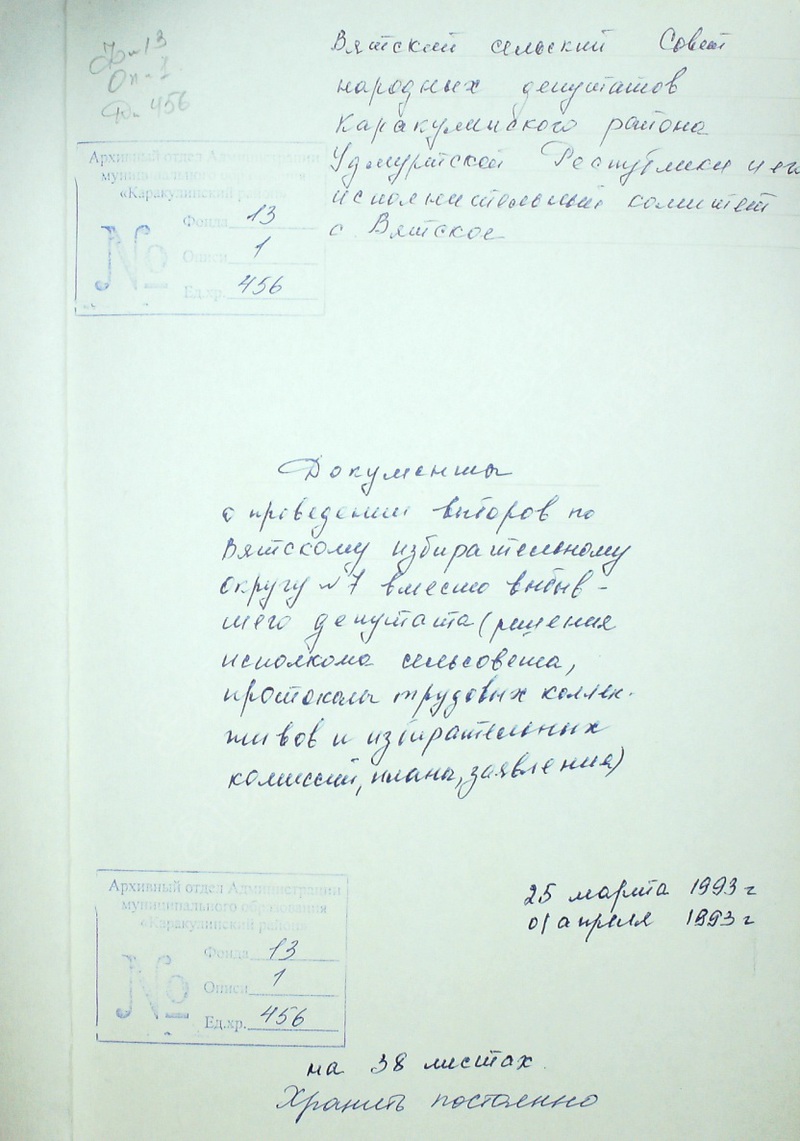 Ф-13
Оп-1
Д-456
Вятский сельский Совет
народных депутатов
Каракулинского района
Удмуртской Республики и его
исполнительный комитет
с. Вятское
Архивный отдел Администрации
муниципального образования
«Каракулинский район»
Фонда 13
№
Описи 1
Ед.хр. 456
Документы
о проведении выборов по
Вятскому избирательному
округу №7 вместо выбыв-
шего депутата (решения
исполкома сельсовета,
протоколы трудовых коллек-
тивов и избирательных
комиссий, планы, заявления)
25 марта 1993 г
01 апреля 1993 г
Архивный отдел Администрации
муниципального образования
«Каракулинский район»
Фонда 13
№
Описи 1
Ед.хр. 456
на 38 листах
Хранить постоянно